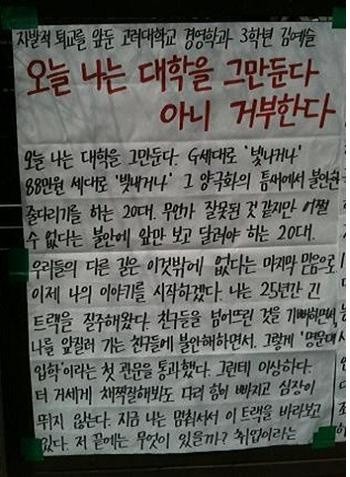 자발적 퇴교를 앞둔 고려대학교 경영학과 3학년 김예슬
오늘 나는 대학을 그만둔다
아니 거부한다
오늘 나는 대학을 그만둔다. G세대로 '빛나거나'
88만원 세대로 '빚내거나' 그 양극화의 틈새에서 불안한
줄타리기를 하는 20대. 무언가 잘못된 것 같지만 어쩔
수 없다는 불안에 앞만 보고 달려야 하는 20대.
우리들의 다른 길은 이것밖에 없다는 마지막 믿음으로
이제 나의 이야기를 시작하겠다. 나는 25년간 긴
트랙을 질주해왔다. 친구들을 넘어뜨린 것을 기뻐하면서,
나를 앞질러 가는 친구들에 불안해하면서. 그렇게 '명문대
입학'이라는 첫 관문을 통과했다. 그런데 이상하다.
더 거세게 채찍질해봐도 다리 힘이 빠지고 심장이
뛰지 않는다. 지금 나는 멈춰서서 이 트랙을 바라보고
있다. 저 끝에는 무엇이 있을까? 취업이라는